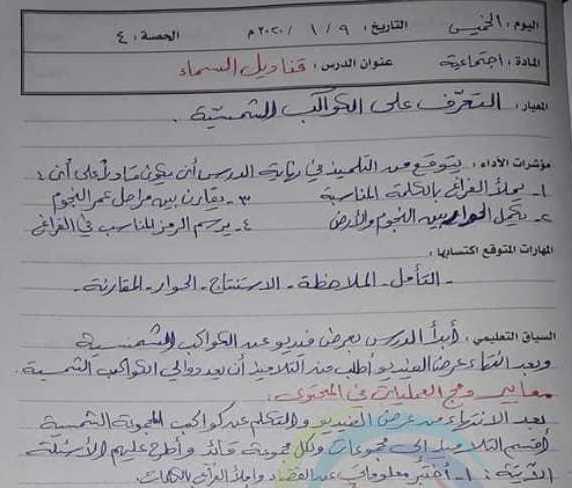 اليوم: الخميس التاريخ: ٩ / ١ / ٢٠٢٠م الحصة: ٤
المادة: اجتماعية عنوان الدرس: قناديل السماء
المعيار: التعرّف على الكواكب الشمسيّة.
مؤشرات الأداء: يتوقع من التلميذ في نهاية الدرس أن يكون قادراً على أن:
١- يملأ الفراغ بالكلمة المناسبة ٣- يقارن بين مراحل عمر النجوم
٢- يكمل الحوار بين النجوم والأرض ٤- يرسم الرمز المناسب في الفراغ
المهارات المتوقع اكتسابها:
- التأمل - الملاحظة - الاستنتاج - الحوار - المقارنة -
السياق التعليمي: أبدأ الدرس بعرض فيديو عن الكواكب الشمسية
وبعد انتهاء عرض الفيديو أطلب من التلاميذ أن يعددوا لي الكواكب الشمسية.
معايير ودمج العمليات في المحتوى:
بعد الانتهاء من عرض الفيديو والتكلم عن كواكب المجموعة الشمسية
أقسم التلاميذ إلى مجموعات ولكل مجموعة قائد وأطرح عليهم الأسئلة
الآتية: ١- أختبر معلوماتي عن الفضاء وأملأ الفراغ بالكلمات.